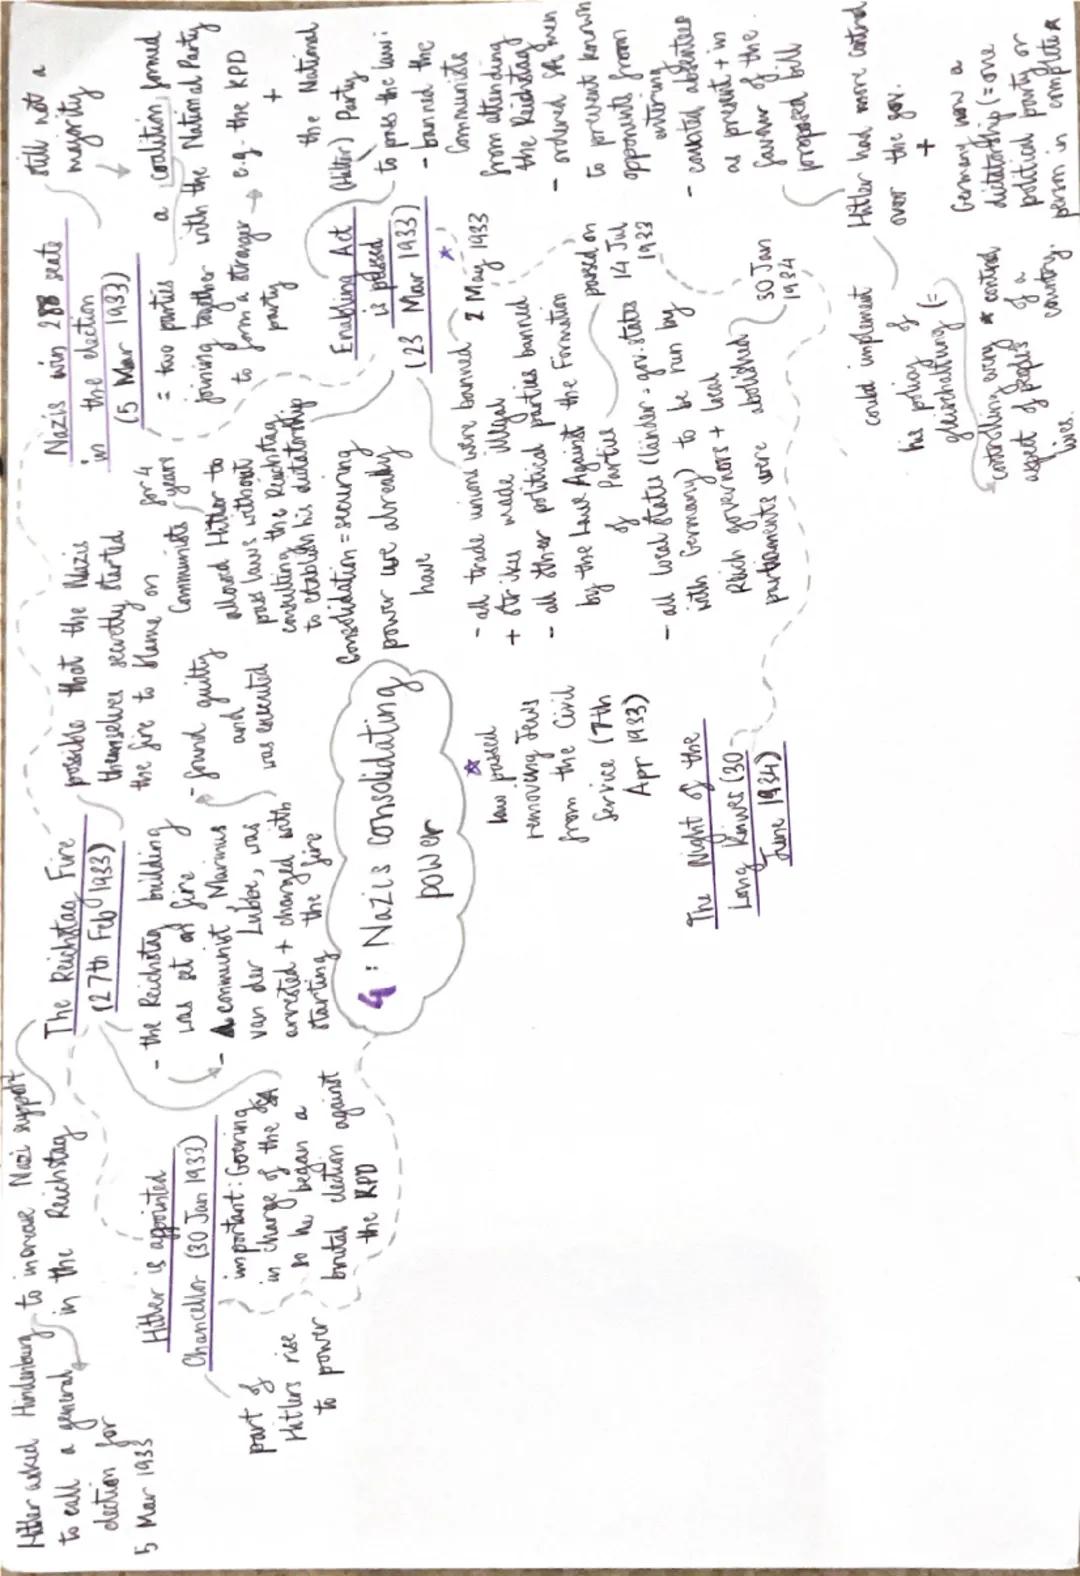 Hitler asked Hindenburg
to call a general
election for
5 Mar 1933
to increase Nazi support
in the Reichstag
Hitler is appointed
Chancellor (30 Jan 1933)
part of
Hitlers rise
to power
important: Goering
in charge of the SA
so he began a
brutal election against
the KPD
The Reichstag Fire
(27th Feb 1933)
- the Reichstag building
was set on fire
- A communist Marinus
van der Lubbe, was
arrested + charged with
starting the fire
- found guilty
and
was executed
possible that the Nazis
themselves secretly started
the fire to blame on
Communists
4: Nazis consolidating
power
Consolidation = securing
power we already
have
Nazis win 288 seats
in the election
(5 Mar 1933)
still not a
majority
= two parties
joining together
to form a stronger
party
a coalition formed
with the National Party
e.g. the KPD
+
the National
Party
Enabling Act
is passed
(23 Mar 1933)
for 4
years
allowed Hitler to
pass laws without
consulting the Reichstag
to establish his dictatorship
(Hitler)
to pass the law:
- banned the
Communists
from attending
the Reichstag
- ordered SA men
to prevent known
opponents from
entering
- counted absentees
as present + in
favour of the
proposed bill
- all trade unions were banned
+ strikes made illegal
2 May 1933
- all other political parties banned
by the Law Against the Formation
of Parties
passed on
14 Jul
1933
- all local states (länder = gov. states
with Germany) to be run by
Reich governors + local
parliaments were abolished
30 Jan
1934
law passed
removing Jews
from the Civil
Service (7th
Apr 1933)
The Night of the
Long Knives (30
June 1934)
Hitler had more control
over the gov.
+
Germany now a
dictatorship (= one
political party or
person in complete
control
of a
country.
could implement
his policy of
gleischaltung (=
controlling every
aspect of people's
lives.